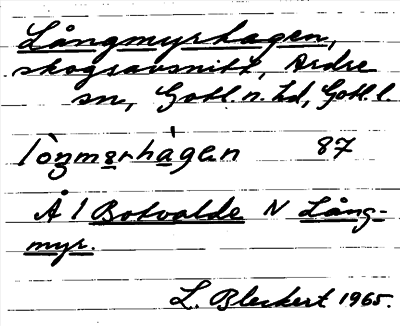 Långmyrhagen,
skogsavsnitt, Ardre
sn, Gotl. n. hd, Gotl. l.
lòŋmərhàgen 87
Å 1 Botvalde N Lång-
myr.
L. Bleckert 1965.